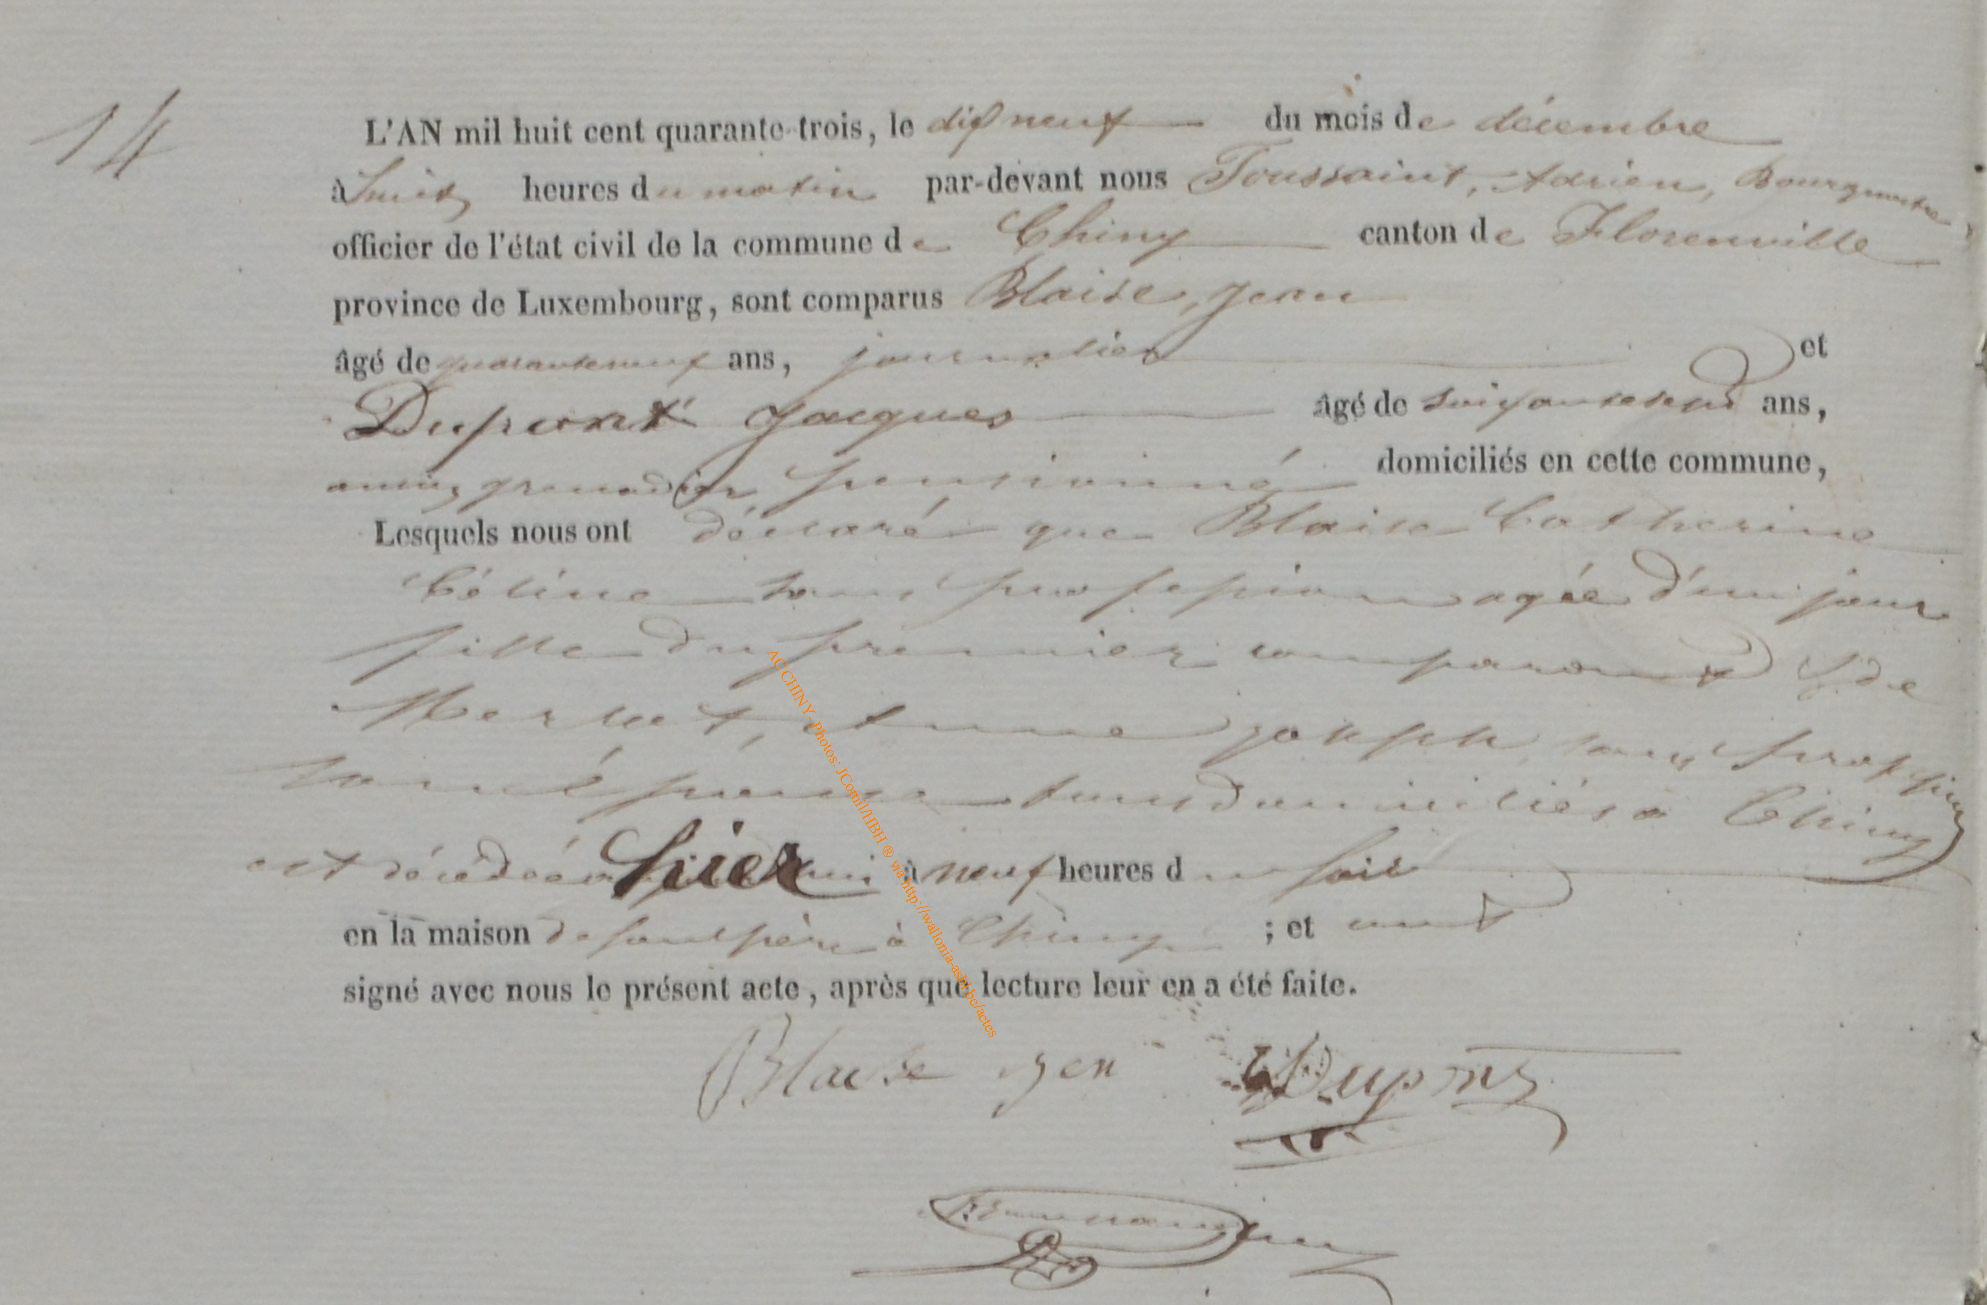 14
L'AN mil huit cent quarante-trois, le dix neuf du mois de décembre
à huit heures du matin par-devant nous Toussaint, Adrien, Bourgmestre
officier de l'état civil de la commune de Chiny canton de Florenville
province de Luxembourg, sont comparus Blaise, Jean
âgé de quarante neuf ans, journalier et
Dupont Jacques âgé de soixante sept ans,
ancien grenadier pensionné domiciliés en cette commune,
Lesquels nous ont déclaré que Blaise Catherine
Céline sans profession agée d'un jour
fille du premier comparant & de
Merlot, Anne Joseph, sans profession
son épouse tous domiciliés à Chiny
est décédée hier à neuf heures du soir
en la maison de son père à Chiny ; et ont
signé avec nous le présent acte, après que lecture leur en a été faite.
Blaise Jen Dupont
AC CHINY - Photos: JCornil/HBH ® wa http://wallonia-asbl.be/actes